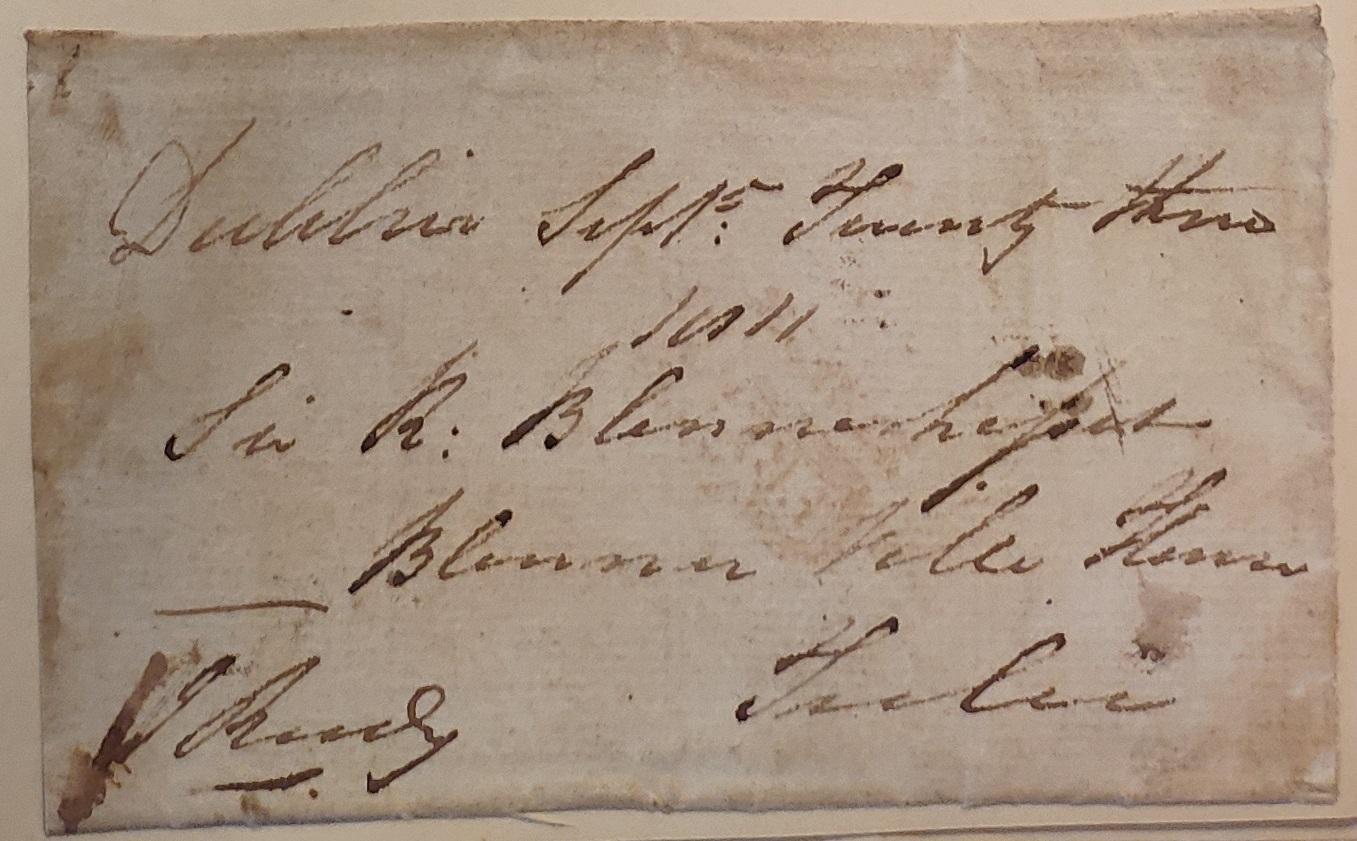 Dublin Septr: Twenty three
1811
Sir R: Blennerhasset
Blenner Ville House
Tralee